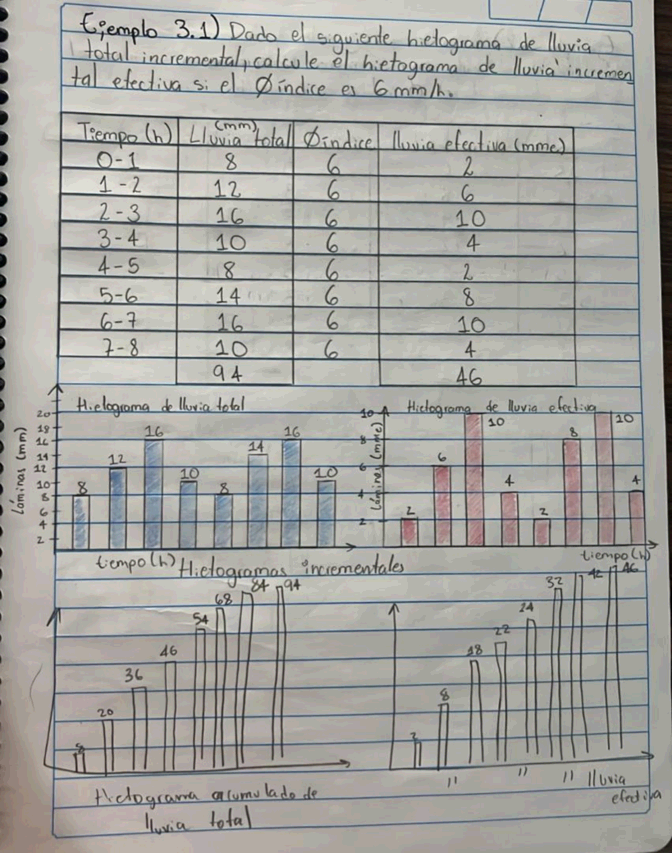 Ejemplo 3.1) Dado el siguiente hietograma de lluvia
total incremental, calcule el hietograma de lluvia incremen
tal efectiva si el Ø índice es 6 mm/h.
Tiempo (h) Lluvia total (mm) Øíndice lluvia efectiva (mme)
0-1 8 6 2
1-2 12 6 6
2-3 16 6 10
3-4 10 6 4
4-5 8 6 2
5-6 14 6 8
6-7 16 6 10
7-8 10 6 4
94 46
Hietograma de lluvia total
Láminas (mm)
20
18
16
14
12
10
8
6
4
2
8 12 16 10 8 14 16 10
tiempo (h)
Hietograma de lluvia efectiva
Láminas (mme)
10
8
6
4
2
2 6 10 4 2 8 10 4
tiempo (h)
Hietogramas incrementales
8 20 36 46 54 68 84 94
Hietograma acumulado de
lluvia total
2 8 18 22 24 32 42 46
" " " lluvia
efectiva